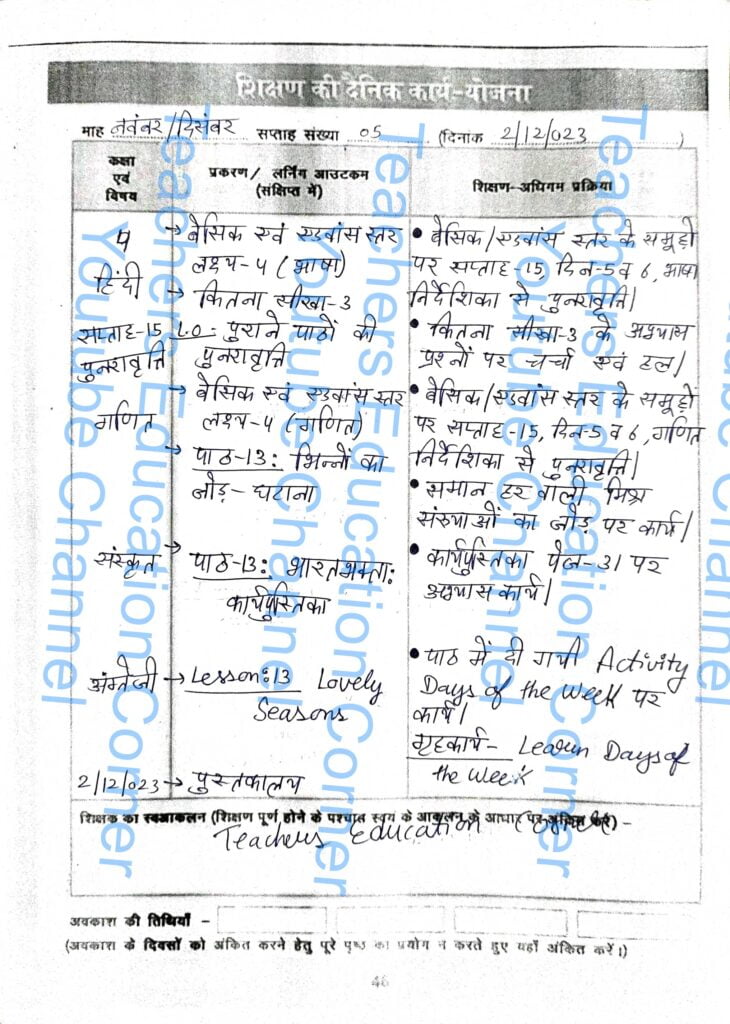 शिक्षण की दैनिक कार्य-योजना
माह नवंबर/दिसंबर सप्ताह संख्या 05 (दिनांक 2/12/023)
कक्षा एवं विषय
प्रकरण/ लर्निंग आउटकम (संक्षिप्त में)
शिक्षण-अधिगम प्रक्रिया
4
हिंदी
सप्ताह-15
पुनरावृत्ति
→ बेसिक एवं एडवांस स्तर
लक्ष्य-4 (भाषा)
→ कितना सीखा-3
L.O- पुराने पाठों की
पुनरावृत्ति
• बेसिक/एडवांस स्तर के समूहों
पर सप्ताह-15, दिन-5 व 6, भाषा
निर्देशिका से पुनरावृत्ति।
• कितना सीखा-3 के अभ्यास
प्रश्नों पर चर्चा एवं हल।
गणित
→ बेसिक एवं एडवांस स्तर
लक्ष्य-4 (गणित)
→ पाठ-13: भिन्नों का
जोड़-घटाना
• बेसिक/एडवांस स्तर के समूहों
पर सप्ताह-15, दिन-5 व 6, गणित
निर्देशिका से पुनरावृत्ति।
• समान हर वाली मिश्र
संख्याओं का जोड़ पर कार्य।
संस्कृत
→ पाठ-13: भारतभक्ताः
कार्यपुस्तिका
• कार्यपुस्तिका पेज-31 पर
अभ्यास कार्य।
अंग्रेजी
→ Lesson:13 Lovely
Seasons
• पाठ में दी गयी Activity
Days of the Week पर
कार्य।
गृहकार्य- Learn Days of
the Week
2/12/023 → पुस्तकालय
शिक्षक का स्वआकलन (शिक्षण पूर्ण होने के पश्चात स्वयं के आकलन के आधार पर अंकित करें) -
Teachers Education Corner
अवकाश की तिथियाँ -
(अवकाश के दिवसों को अंकित करने हेतु पूरे पृष्ठ का प्रयोग न करते हुए यहाँ अंकित करें।)
46
Teachers Education Corner
Youtube Channel
Teachers Education Corner
Youtube Channel
Teachers Education Corner
Youtube Channel
ube Channel